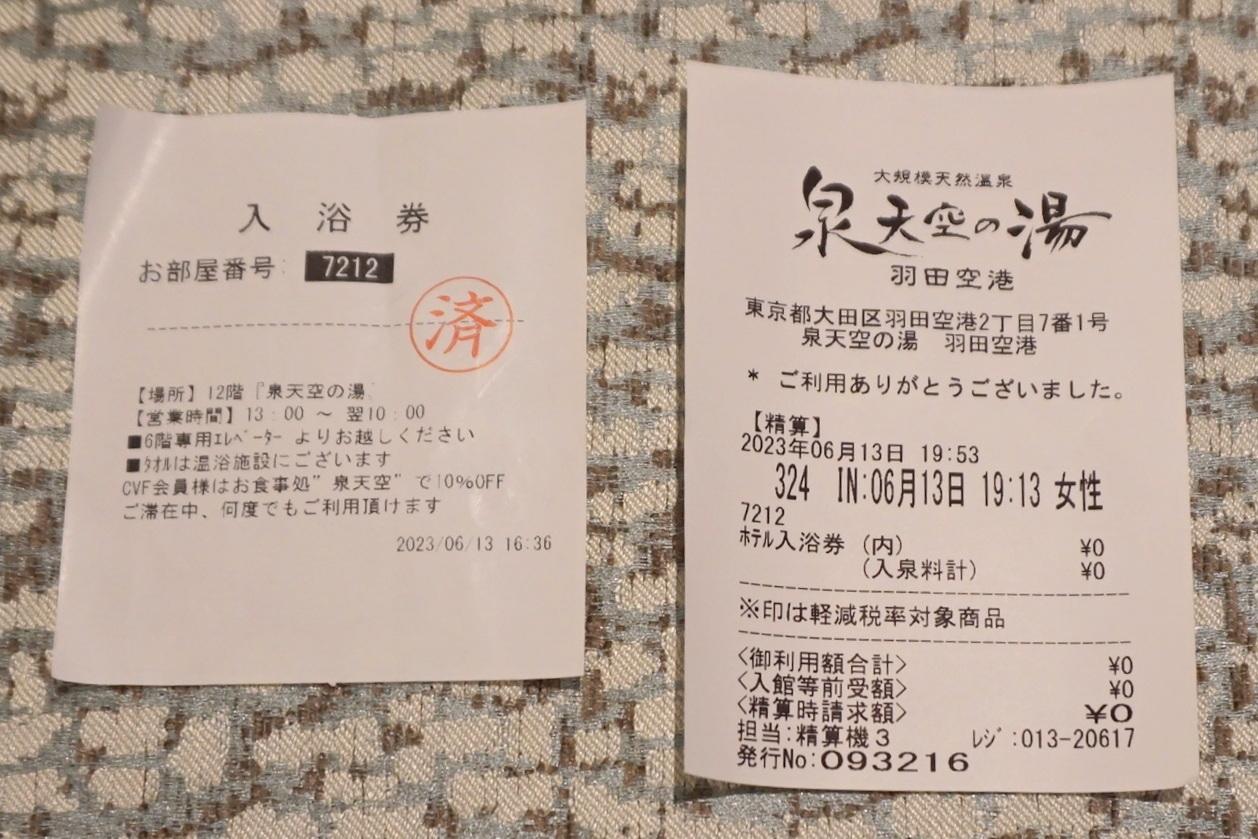 入浴券
お部屋番号: 7212
済
【場所】12階『泉天空の湯』
【営業時間】13:00 ～ 翌10:00
■6階専用ｴﾚﾍﾞｰﾀｰ よりお越しください
■ﾀｵﾙは温浴施設にございます
CVF会員様はお食事処”泉天空”で10%OFF
ご滞在中、何度でもご利用頂けます
2023/06/13 16:36
大規模天然温泉
泉天空の湯
羽田空港
東京都大田区羽田空港2丁目7番1号
泉天空の湯　羽田空港
* ご利用ありがとうございました。
【精算】
2023年06月13日 19:53
324 IN:06月13日 19:13 女性
7212
ﾎﾃﾙ入浴券 (内) ¥0
(入泉料計) ¥0
※印は軽減税率対象商品
<御利用額合計> ¥0
<入館等前受額> ¥0
<精算時請求額> ¥0
担当:精算機3 ﾚｼﾞ:013-20617
発行No:093216